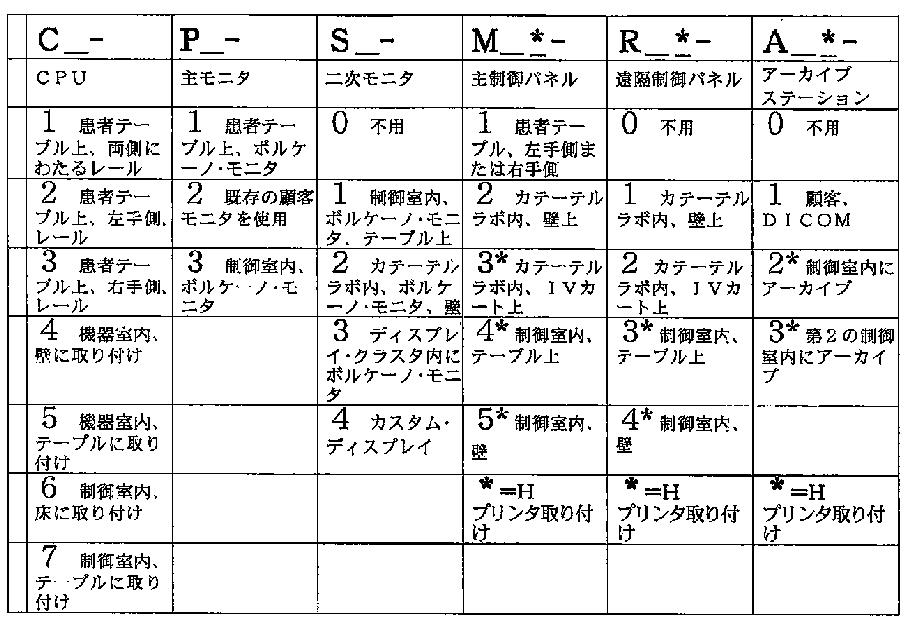 C＿-
P＿-
S＿-
M＿*-
R＿*-
A＿*-
CPU
主モニタ
二次モニタ
主制御パネル
遠隔制御パネル
アーカイブ
ステーション
1 患者テー
ブル上、両側に
わたるレール
1 患者テー
ブル上、ボルケ
ーノ・モニタ
0 不用
1 患者テー
ブル、左手側ま
たは右手側
0 不用
0 不用
2 患者テー
ブル上、左手側、
レール
2 既存の顧客
モニタを使用
1 制御室内、
ボルケーノ・モニ
タ、テーブル上
2 カテーテル
ラボ内、壁上
1 カテーテル
ラボ内、壁上
1 顧客、
DICOM
3 患者テー
ブル上、右手側、
レール
3 制御室内、
ボルケーノ・モ
ニタ
2 カテーテル
ラボ内、ボルケ
ーノ・モニタ、壁
3* カテーテル
ラボ内、IVカ
ート上
2 カテーテル
ラボ内、IVカ
ート上
2* 制御室内に
アーカイブ
4 機器室内、
壁に取り付け
3 ディスプレ
イ・クラスタ内に
ボルケーノ・モニ
タ
4* 制御室内、
テーブル上
3* 制御室内、
テーブル上
3* 第2の制御
室内にアーカイ
ブ
5 機器室内、
テーブルに取り
付け
4 カスタム・
ディスプレイ
5* 制御室内、
壁
4* 制御室内、
壁
6 制御室内、
床に取り付け
*=H
プリンタ取り付
け
*=H
プリンタ取り付
け
*=H
プリンタ取り付
け
7 制御室内、
テーブルに取り
付け